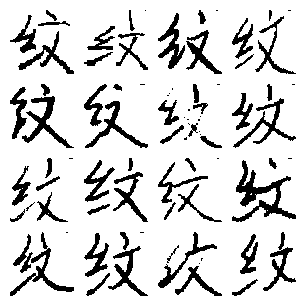 纹纹纹纹
纹纹纹纹
纹纹纹纹
纹纹纹纹